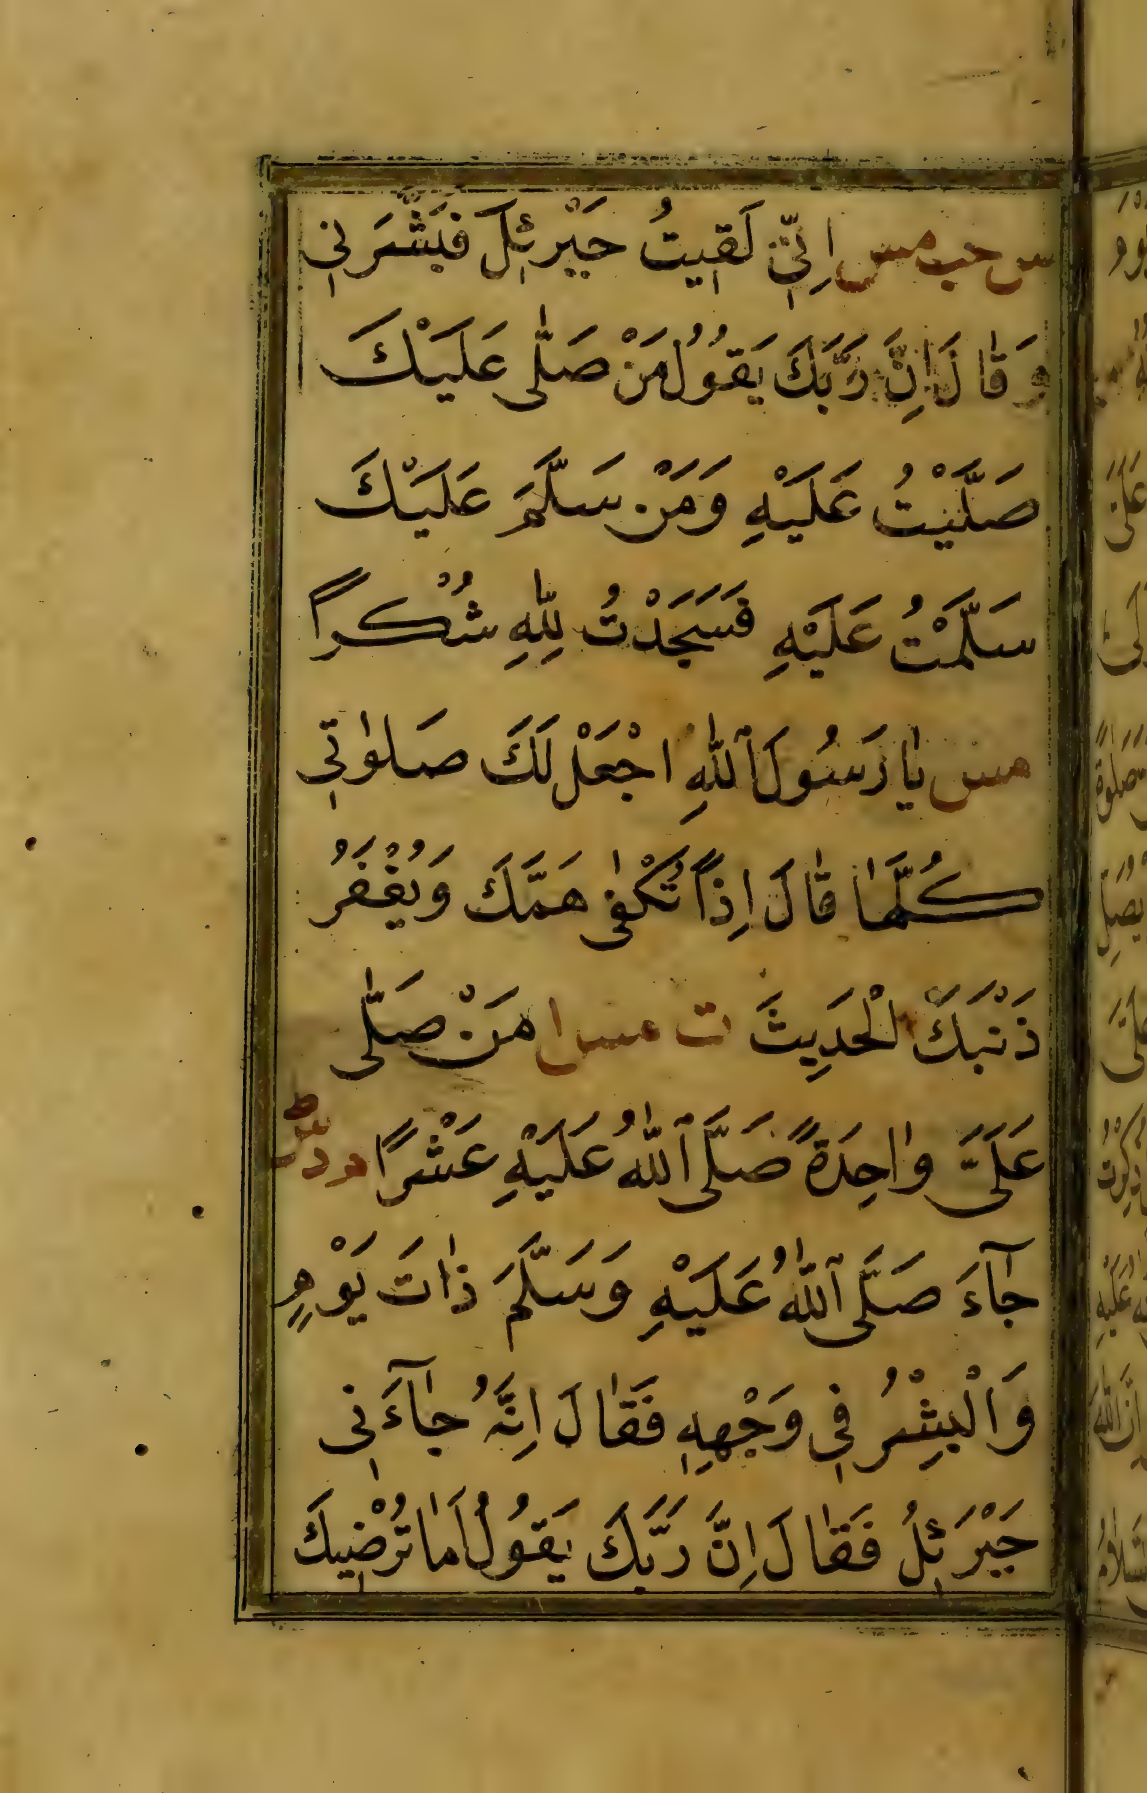 س حب مس اِنِّي لَقِيتُ جَبْرَئِلَ فَبَشَّرَنِي
وَقَالَ اِنَّ رَبَّكَ يَقُولُ مَنْ صَلّٰى عَلَيْكَ
صَلَّيْتُ عَلَيْهِ وَمَنْ سَلَّمَ عَلَيْكَ
سَلَّمْتُ عَلَيْهِ فَسَجَدْتُ لِلّٰهِ شُكْرًا
مس يٰا رَسُولَ اللّٰهِ اجْعَلْ لَكَ صَلوٰتِي
كُلَّهٰا قٰالَ اِذًا تُكْفٰى هَمَّكَ وَيُغْفَرُ
ذَنْبَكَ الْحَدِيثَ ت مس ا مَنْ صَلّٰى
عَلَيَّ وٰاحِدَةً صَلَّى اللّٰهُ عَلَيْهِ عَشْرًا م د ت س
جٰآءَ صَلَّى اللّٰهُ عَلَيْهِ وَسَلَّمَ ذٰاتَ يَوْمٍ
وَالْبِشْرُ فِي وَجْهِهِ فَقٰالَ اِنَّهُ جٰآءَنِي
جَبْرَئِلُ فَقٰالَ اِنَّ رَبَّكَ يَقُولُ اَمٰا تُرْضِيكَ